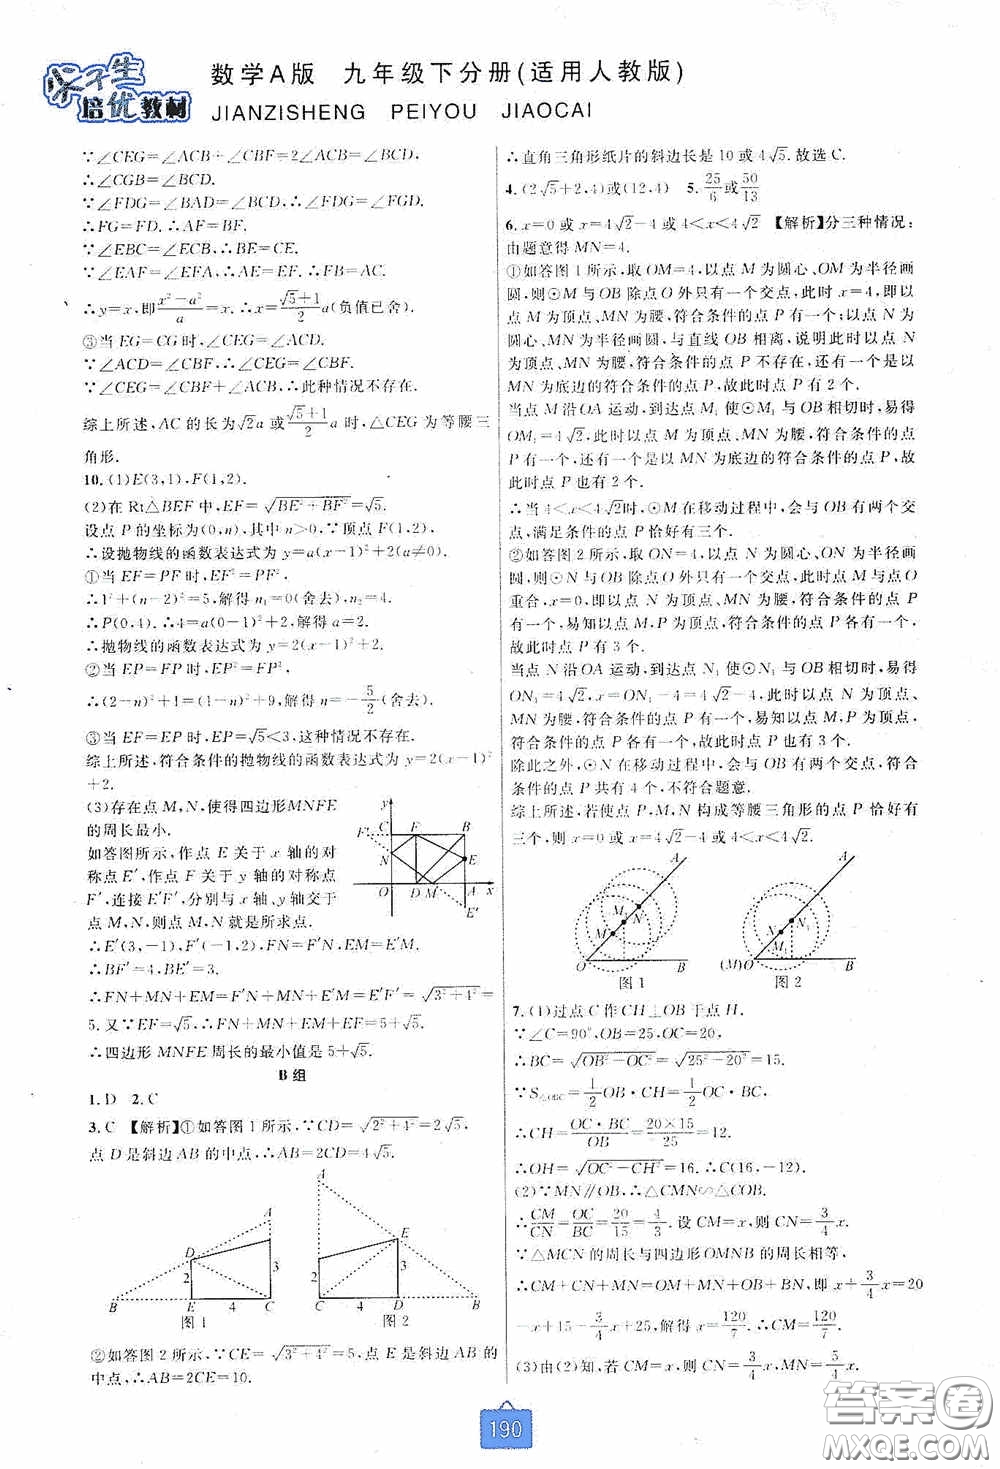 尖子生
培优教材
数学A版 九年级下分册(适用人教版)
JIANZISHENG PEIYOU JIAOCAI
∵∠CEG=∠ACB+∠CBF=2∠ACB=∠BCD,
∴∠CGB=∠BCD.
∵∠FDG=∠BAD=∠BCD,∴∠FDG=∠FGD.
∴FG=FD.∴AF=BF.
∵∠EBC=∠ECB,∴BE=CE.
∵∠EAF=∠EFA,∴AE=EF.∴FB=AC.
∴y=x,即(x²-a²)/a=x.∴x=(√5+1)/2 a(负值已舍).
③当EG=CG时,∠CEG=∠ECG.
∵∠ACD=∠CBF,∴∠ECG=∠CBF.
∵∠CEG=∠CBF+∠ACB,∴此种情况不存在.
综上所述,AC的长为√2a或(√5+1)/2 a时,△CEG为等腰三
角形.
10.(1)E(3,1),F(1,2).
(2)在Rt△BEF中,EF=√(BE²+BF²)=√5.
设点P的坐标为(0,n),其中n>0,∵顶点F(1,2),
∴设抛物线的函数表达式为y=a(x-1)²+2(a≠0).
①当EF=PF时,EF²=PF².
∴1²+(n-2)²=5,解得n₁=0(舍去),n₂=4.
∴P(0,4).∴4=a(0-1)²+2.解得a=2.
∴抛物线的函数表达式为y=2(x-1)²+2.
②当EP=FP时,EP²=FP².
∴(2-n)²+1=(1-n)²+9,解得n=-5/2(舍去).
③当EF=EP时,EP=√5<3,这种情况不存在.
综上所述,符合条件的抛物线的函数表达式为y=2(x-1)²
+2.
(3)存在点M,N,使得四边形MNFE
的周长最小.
如答图所示,作点E关于x轴的对
称点E′,作点F关于y轴的对称点
F′,连接E′F′,分别与x轴、y轴交于
点M,N,则点M,N就是所求点.
∴E′(3,-1),F′(-1,2),FN=F′N,EM=E′M.
∴BF′=4,BE′=3.
∴FN+MN+EM=F′N+MN+E′M=F′E′=√(3²+4²)=
5.又∵EF=√5,∴FN+MN+EM+EF=5+√5.
∴四边形MNFE周长的最小值是5+√5.
y
F′ C F B
N E
O D M A x
E′
B组
1.D 2.C
3.C 【解析】①如答图1所示,∵CD=√(2²+4²)=2√5,
点D是斜边AB的中点,∴AB=2CD=4√5.
A
D
2 3
B E 4 C
图1
A
E
2 3
C 4 D B
图2
②如答图2所示,∵CE=√(3²+4²)=5,点E是斜边AB的
中点,∴AB=2CE=10.
∴直角三角形纸片的斜边长是10或4√5.故选C.
4.(2√5+2,4)或(12,4) 5.25/6或50/13
6.x=0或x=4√2-4或4<x<4√2 【解析】分三种情况:
由题意得MN=4.
①如答图1所示,取OM=4,以点M为圆心、OM为半径画
圆,则⊙M与OB除点O外只有一个交点,此时x=4,即以
点M为顶点、MN为腰,符合条件的点P有一个;以点N为
圆心、MN为半径画圆,与直线OB相离,说明此时以点N
为顶点、MN为腰,符合条件的点P不存在,还有一个是以
MN为底边的符合条件的点P,故此时点P有2个.
当点M沿OA运动,到达点M₁使⊙M₁与OB相切时,易得
OM₁=4√2,此时以点M为顶点、MN为腰,符合条件的点
P有一个,还有一个是以MN为底边的符合条件的点P,故此时
点P也有2个.
∴当4<x<4√2时,⊙M在移动过程中,会与OB有两个交
点,满足条件的点P恰好有三个.
②如答图2所示,取ON=4,以点N为圆心、ON为半径画
圆,则⊙N与OB除点O外只有一个交点,此时点M与点O
重合,x=0,即以点N为顶点、MN为腰,符合条件的点P
有一个,易知以点M,P为顶点,符合条件的点P各有一个,
故此时点P有3个.
当点N沿OA运动,到达点N₁使⊙N₁与OB相切时,易得
ON₁=4√2,x=ON₁-4=4√2-4,此时以点N为顶点、
MN为腰,符合条件的点P有一个,易知以点M,P为顶点,
符合条件的点P各有一个,故此时点P也有3个.
除此之外,⊙N在移动过程中,会与OB有两个交点,符合条件的
点P共有4个,不符合题意.
综上所述,若使点P,M,N构成等腰三角形的点P恰好有
三个,则x=0或x=4√2-4或4<x<4√2.
A
M M₁ N
O B
图1
A
N N₁
M₁
(M)O B
图2
7.(1)过点C作CH⊥OB于点H.
∵∠C=90°,OB=25,OC=20,
∴BC=√(OB²-OC²)=√(25²-20²)=15.
∵S△OBC=1/2 OB·CH=1/2 OC·BC,
∴CH=(OC·BC)/OB=(20×15)/25=12.
∴OH=√(OC²-CH²)=16.∴C(16,-12).
(2)∵MN∥OB,∴△CMN∽△COB.
∴CM/CN=OC/BC=20/15=4/3.设CM=x,则CN=3/4 x.
∵△MCN的周长与四边形OMNB的周长相等,
∴CM+CN+MN=OM+MN+OB+BN,即x+3/4 x=20
-x+15-3/4 x+25,解得x=120/7.∴CM=120/7.
(3)由(2)知,若CM=x,则CN=3/4 x,MN=5/4 x.
190
答案圈
MXQE.COM